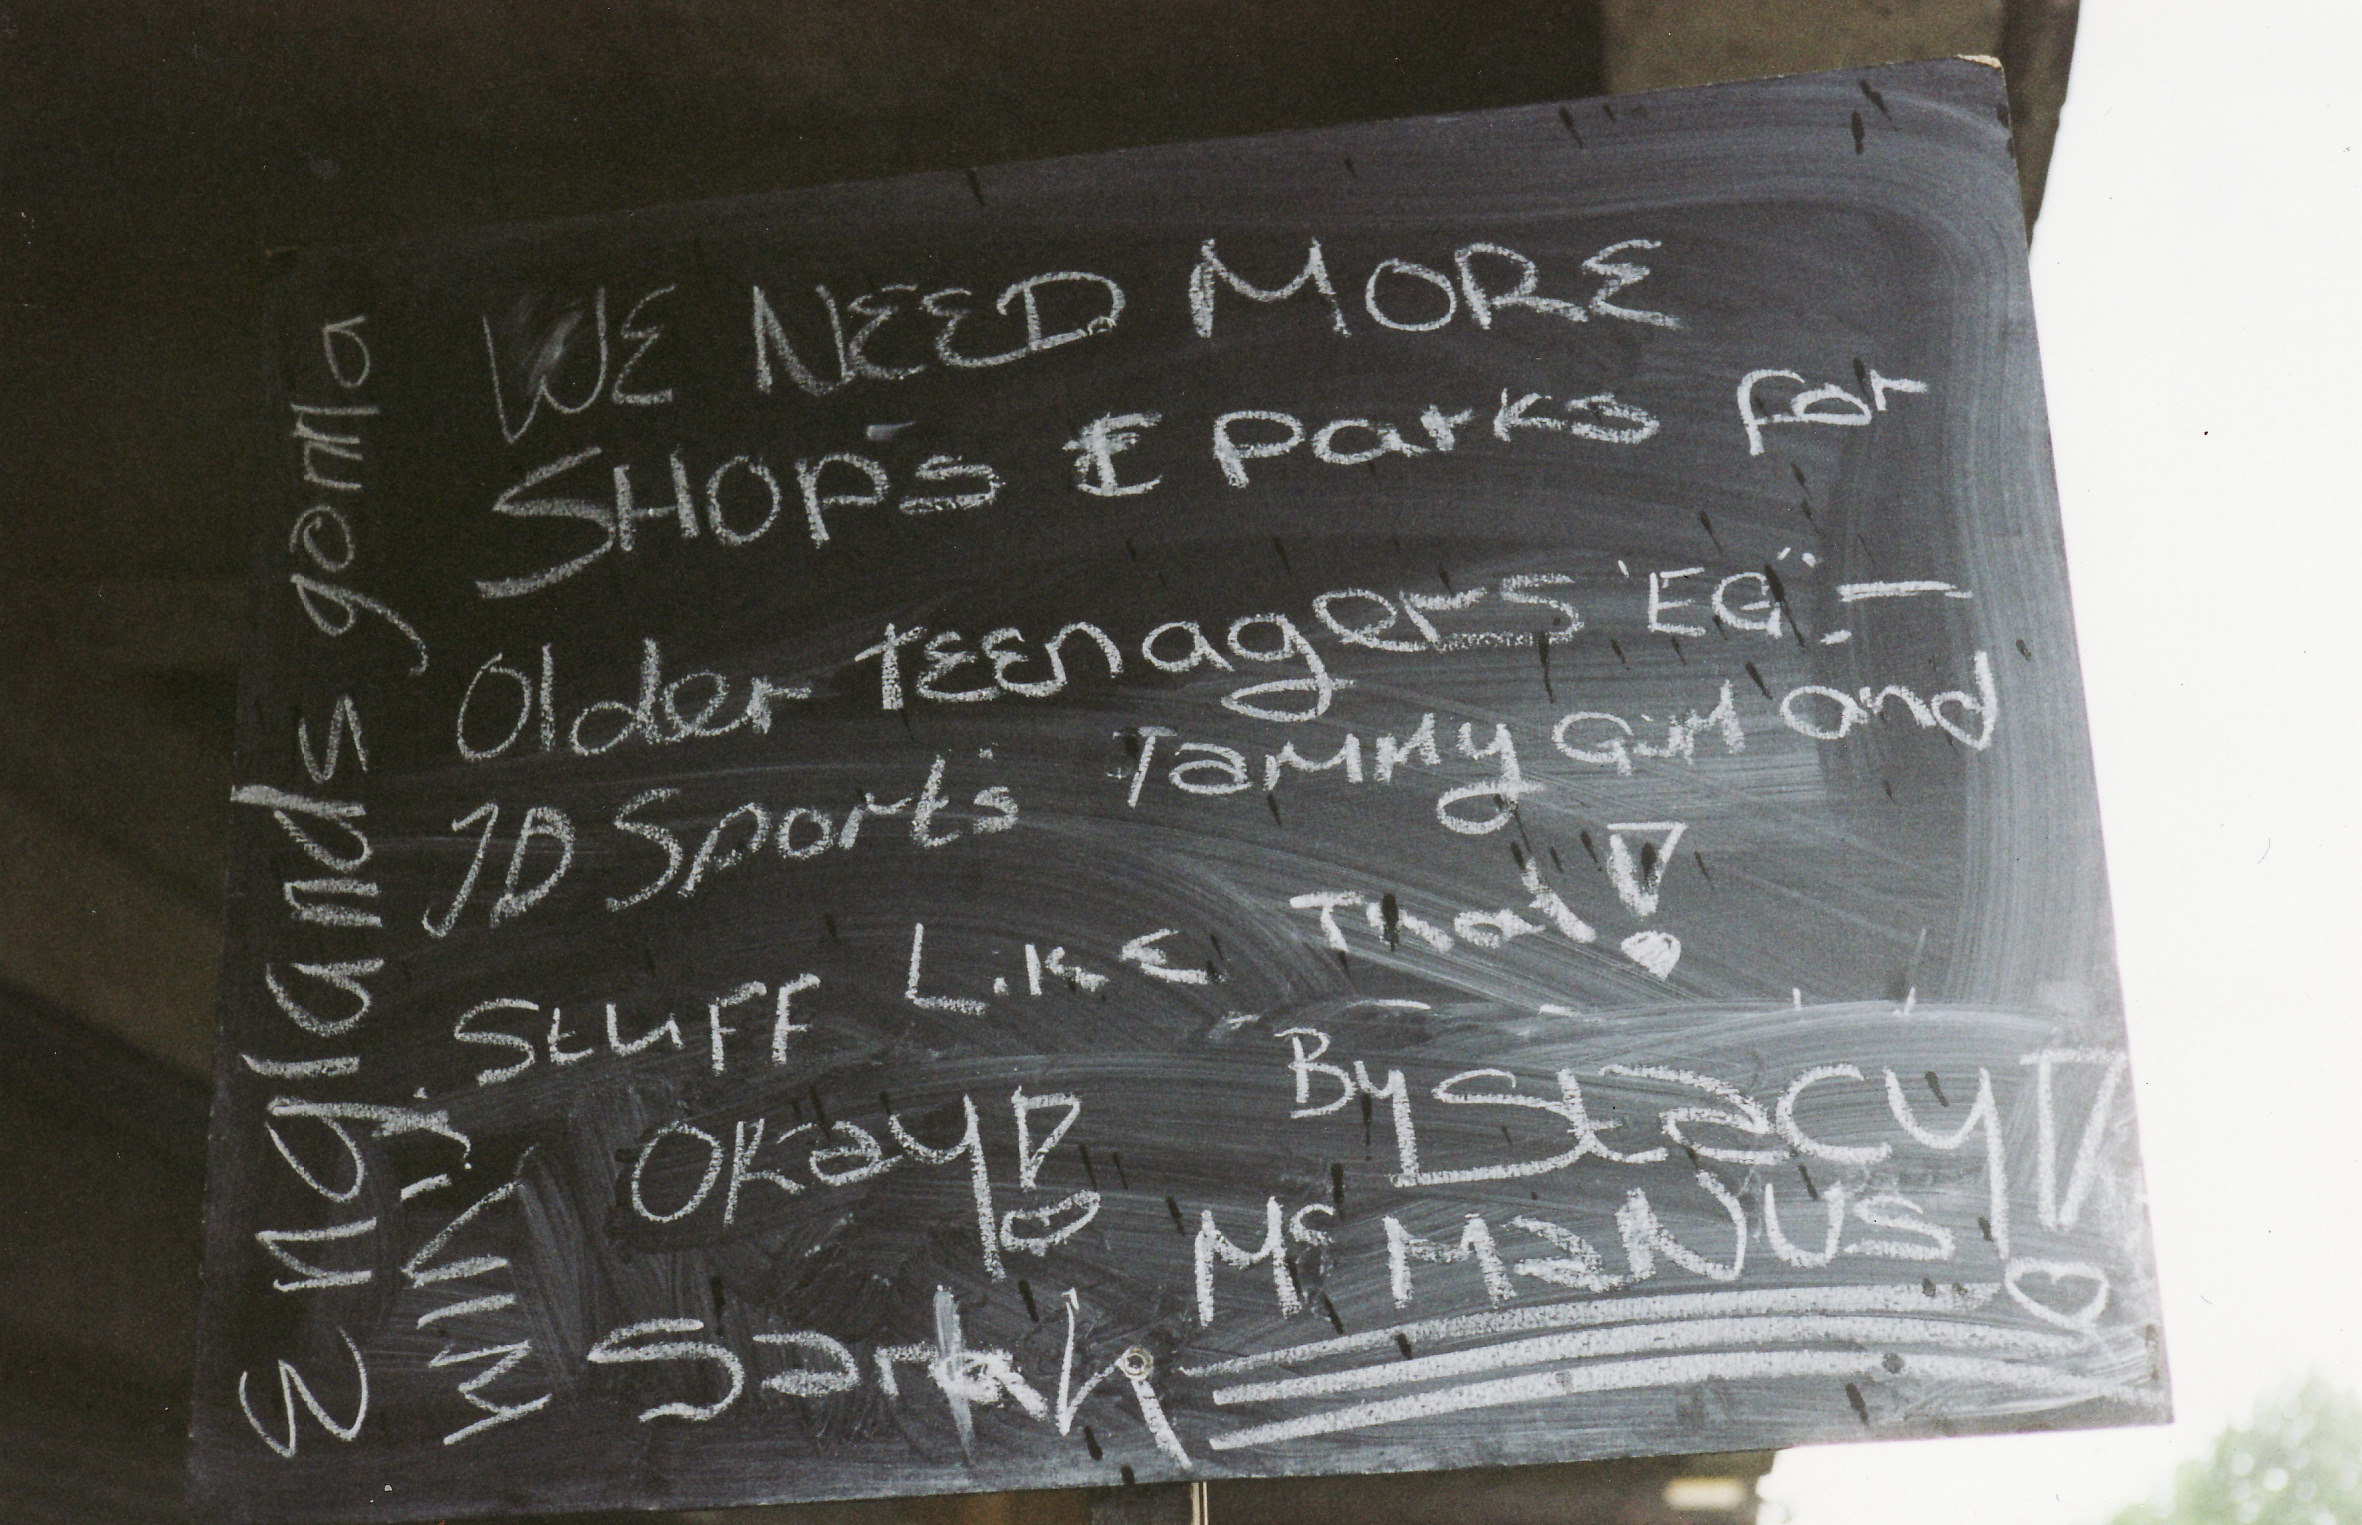 WE NEED MORE
SHOP'S & Parks For
Older teenagers 'EG':-
JD Sport's Tammy Girl and
Stuff Like That!
Okay!
By Stacy!
Mc Manus
Englands gonna
win